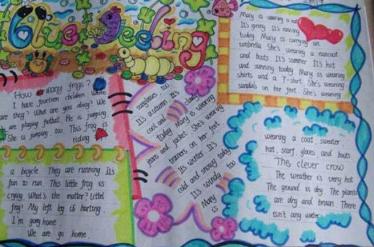 Blue Feeling
How many frogs?
I have fourteen children. Where
are they? What are you doing? We
are playing football. He is jumping.
She is jumping too. This frog is
riding
a bicycle. They are running. It's
fun to run. This little frog is
crying. What's the matter? Little
frog? My left leg is hurting.
I'm going home
We are go home
sunglasses too.
It's autumn. It's
cool and
today. Mary is wearing
jeans and jacket. She's wearing
trainers on her feet.
It's winter. It's
cold and snowy today
It's windy too
Mary is
Mary is wearing a
It's spring. It's raining
today. Mary is carrying an
umbrella. She's wearing a raincoat
and boots. It's summer. It's hot
and sunny today. Mary is wearing
shorts and a T-shirt. She's wearing
sandals on her feet. She's wearing
wearing a coat sweater
hat, scarf, gloves and boots
The clever crow
The weather is very hot
The ground is dry. The plants
are dry and brown. There
isn't any water